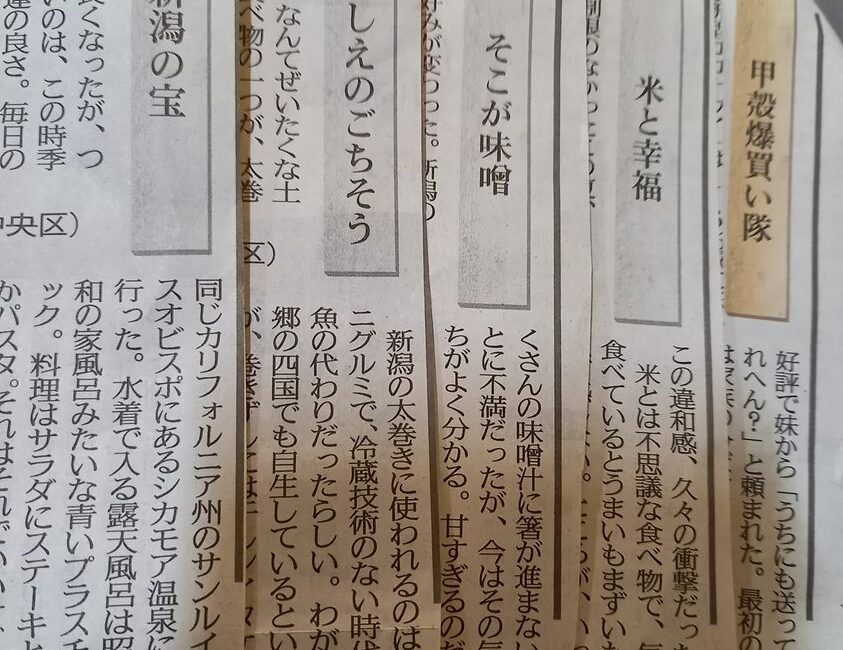 甲殻爆買い隊
好評で妹から「うちにも送って
れへん?」と頼まれた。最初の
米と幸福
この違和感、久々の衝撃だっ
米とは不思議な食べ物で、
食べているとうまいもまずい
そこが味噌
くさんの味噌汁に箸が進まない
とに不満だったが、今はその気
ちがよく分かる。甘すぎるのだ
好みが変わった。新潟の
しえのごちそう
新潟の太巻きに使われるのは
ニグルミで、冷蔵技術のない時代
魚の代わりだったらしい。わが
郷の四国でも自生しているとい
なんてぜいたくな土
べ物の一つが、太巻
区)
新潟の宝
同じカリフォルニア州のサンルイ
スオビスポにあるシカモア温泉に
行った。水着で入る露天風呂は昭
和の家風呂みたいな青いプラスチ
ック。料理はサラダにステーキと
かパスタ。それはそれでいい
良くなったが、つ
いのは、この時季
の良さ。毎日の
中央区)